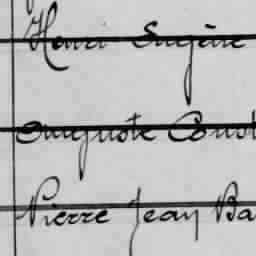 Henri Eugène
Auguste Const
Pierre Jean Ba